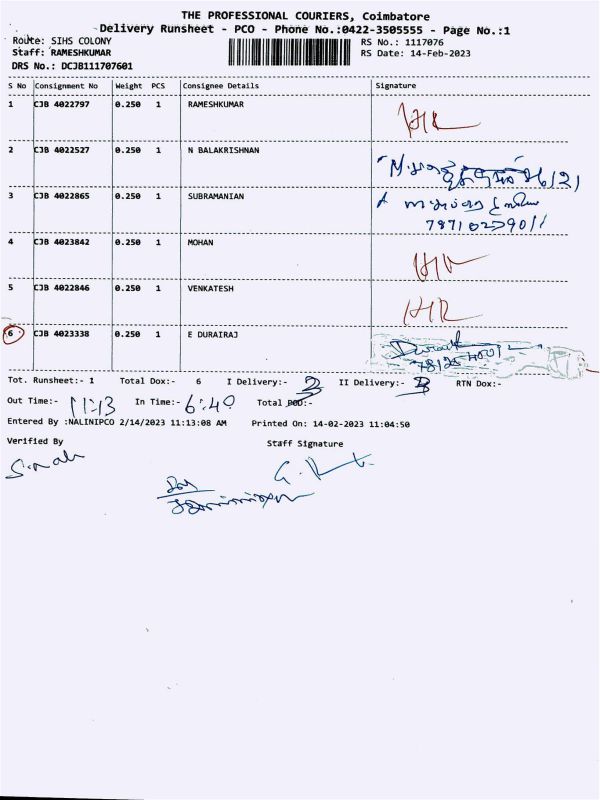 THE PROFESSIONAL COURIERS, Coimbatore
Delivery Runsheet - PCO - Phone No.:0422-3505555 - Page No.:1
Route: SIHS COLONY RS No.: 1117076
Staff: RAMESHKUMAR RS Date: 14-Feb-2023
DRS No.: DCJB111707601
S No Consignment No Weight PCS Consignee Details Signature
1 CJB 4022797 0.250 1 RAMESHKUMAR
2 CJB 4022527 0.250 1 N BALAKRISHNAN
3 CJB 4022865 0.250 1 SUBRAMANIAN
4 CJB 4023842 0.250 1 MOHAN
5 CJB 4022846 0.250 1 VENKATESH
6 CJB 4023338 0.250 1 E DURAIRAJ
Tot. Runsheet:- 1 Total Dox:- 6 I Delivery:- 3 II Delivery:- 3 RTN Dox:-
Out Time:- 11:13 In Time:- 6:40 Total POD:-
Entered By :NALINIPCO 2/14/2023 11:13:08 AM Printed On: 14-02-2023 11:04:50
Verified By Staff Signature